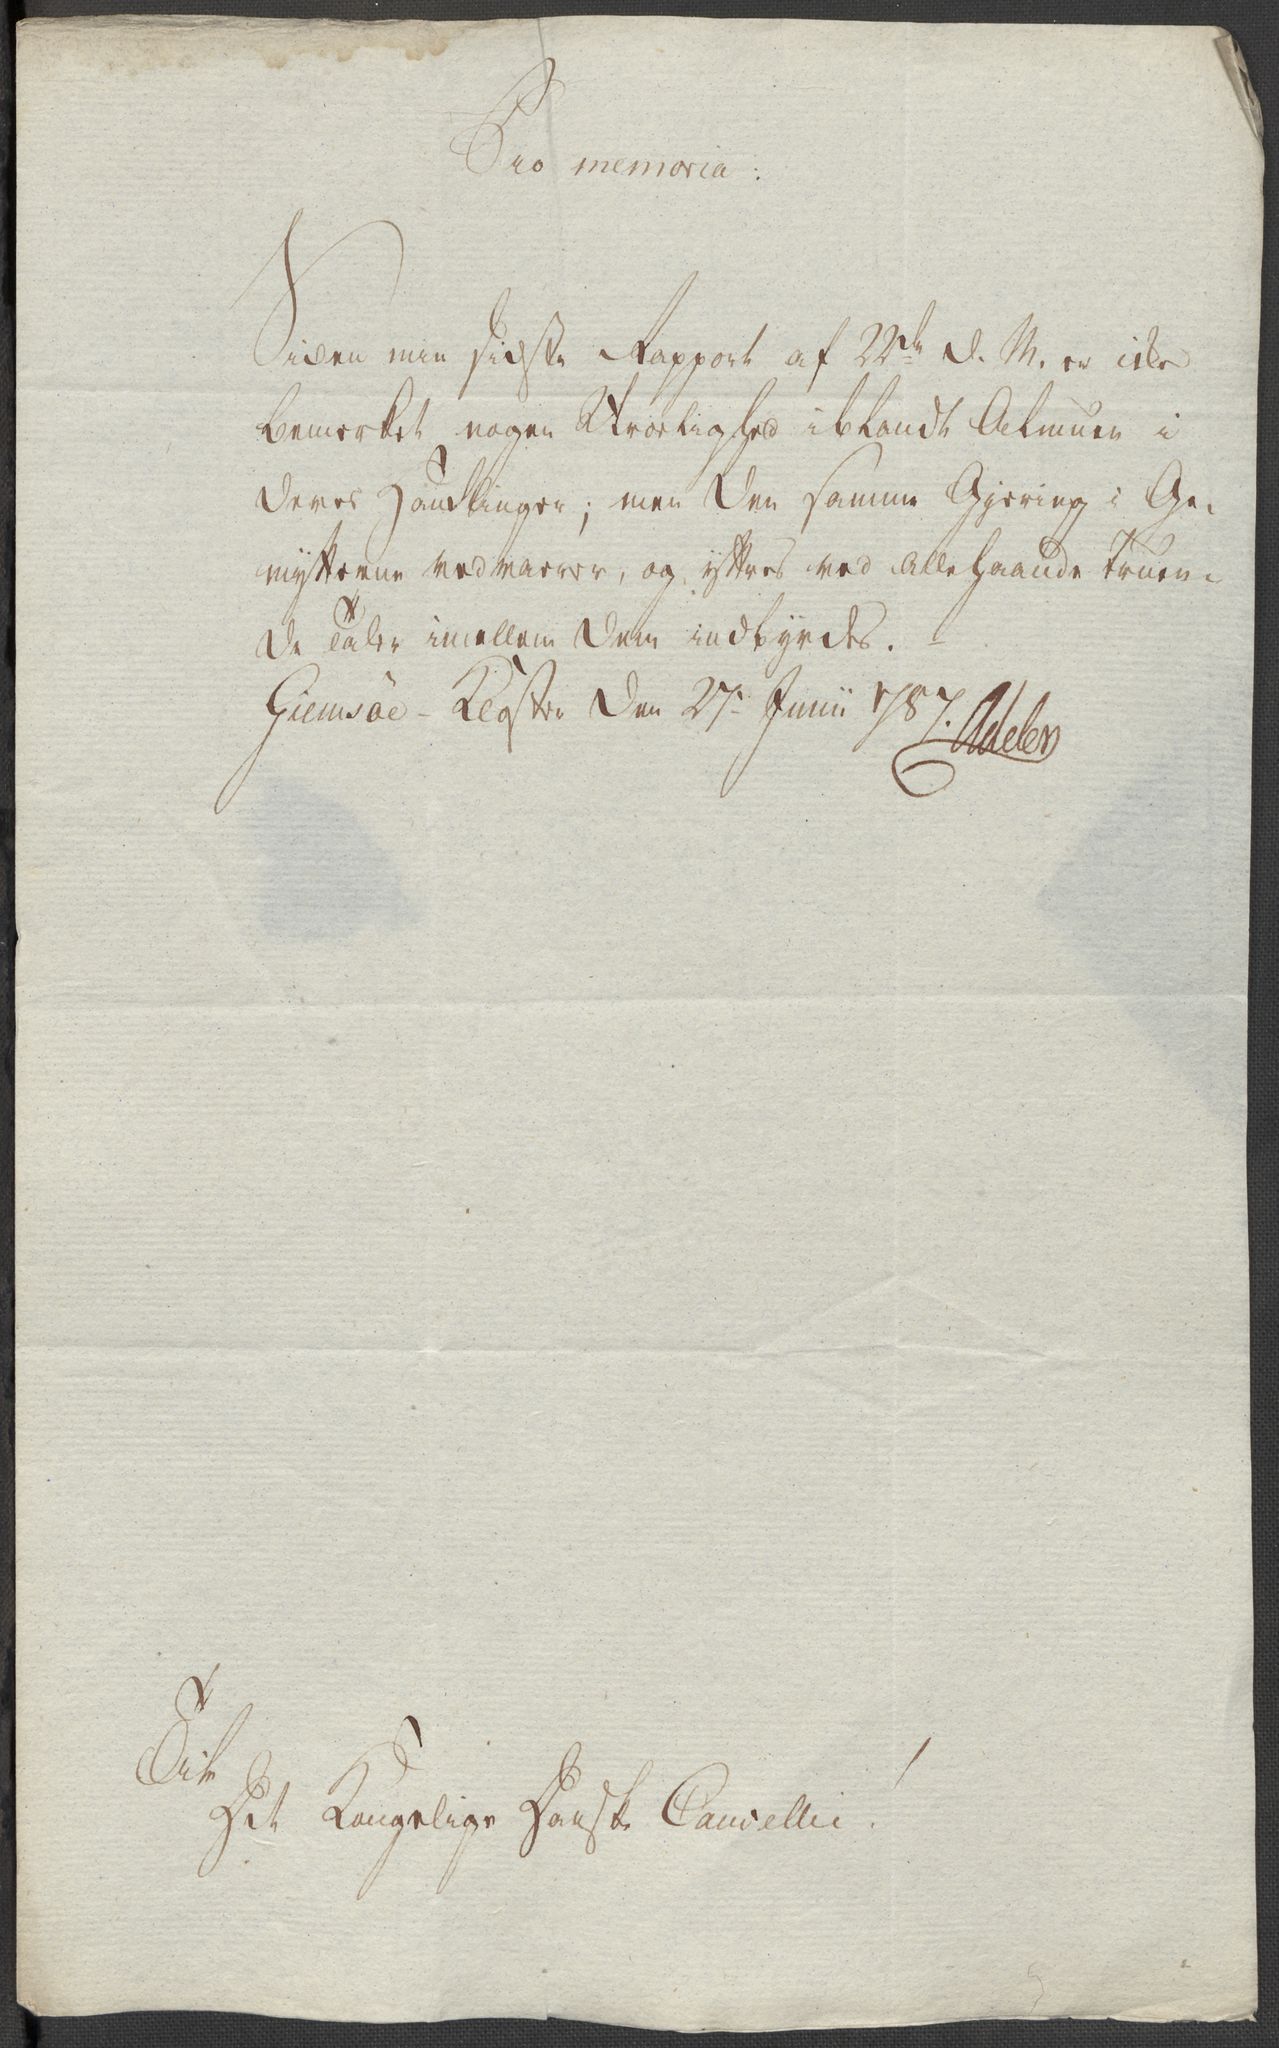 Pro memoria.
Siden min sidste Rapport af 22de d. M. er ikke
bemerket nogen Uroelighed iblandt Almuen i
deres Handlinger; men den samme Gjering i Ge-
mytterne vedvarer, og yttres ved allehaande truen-
de Taler imellem dem indbyrdes. –
Giemsøe-Kloster den 27. Junii 1787. Adeler
Til
Det Kongelige Danske Cancellie!